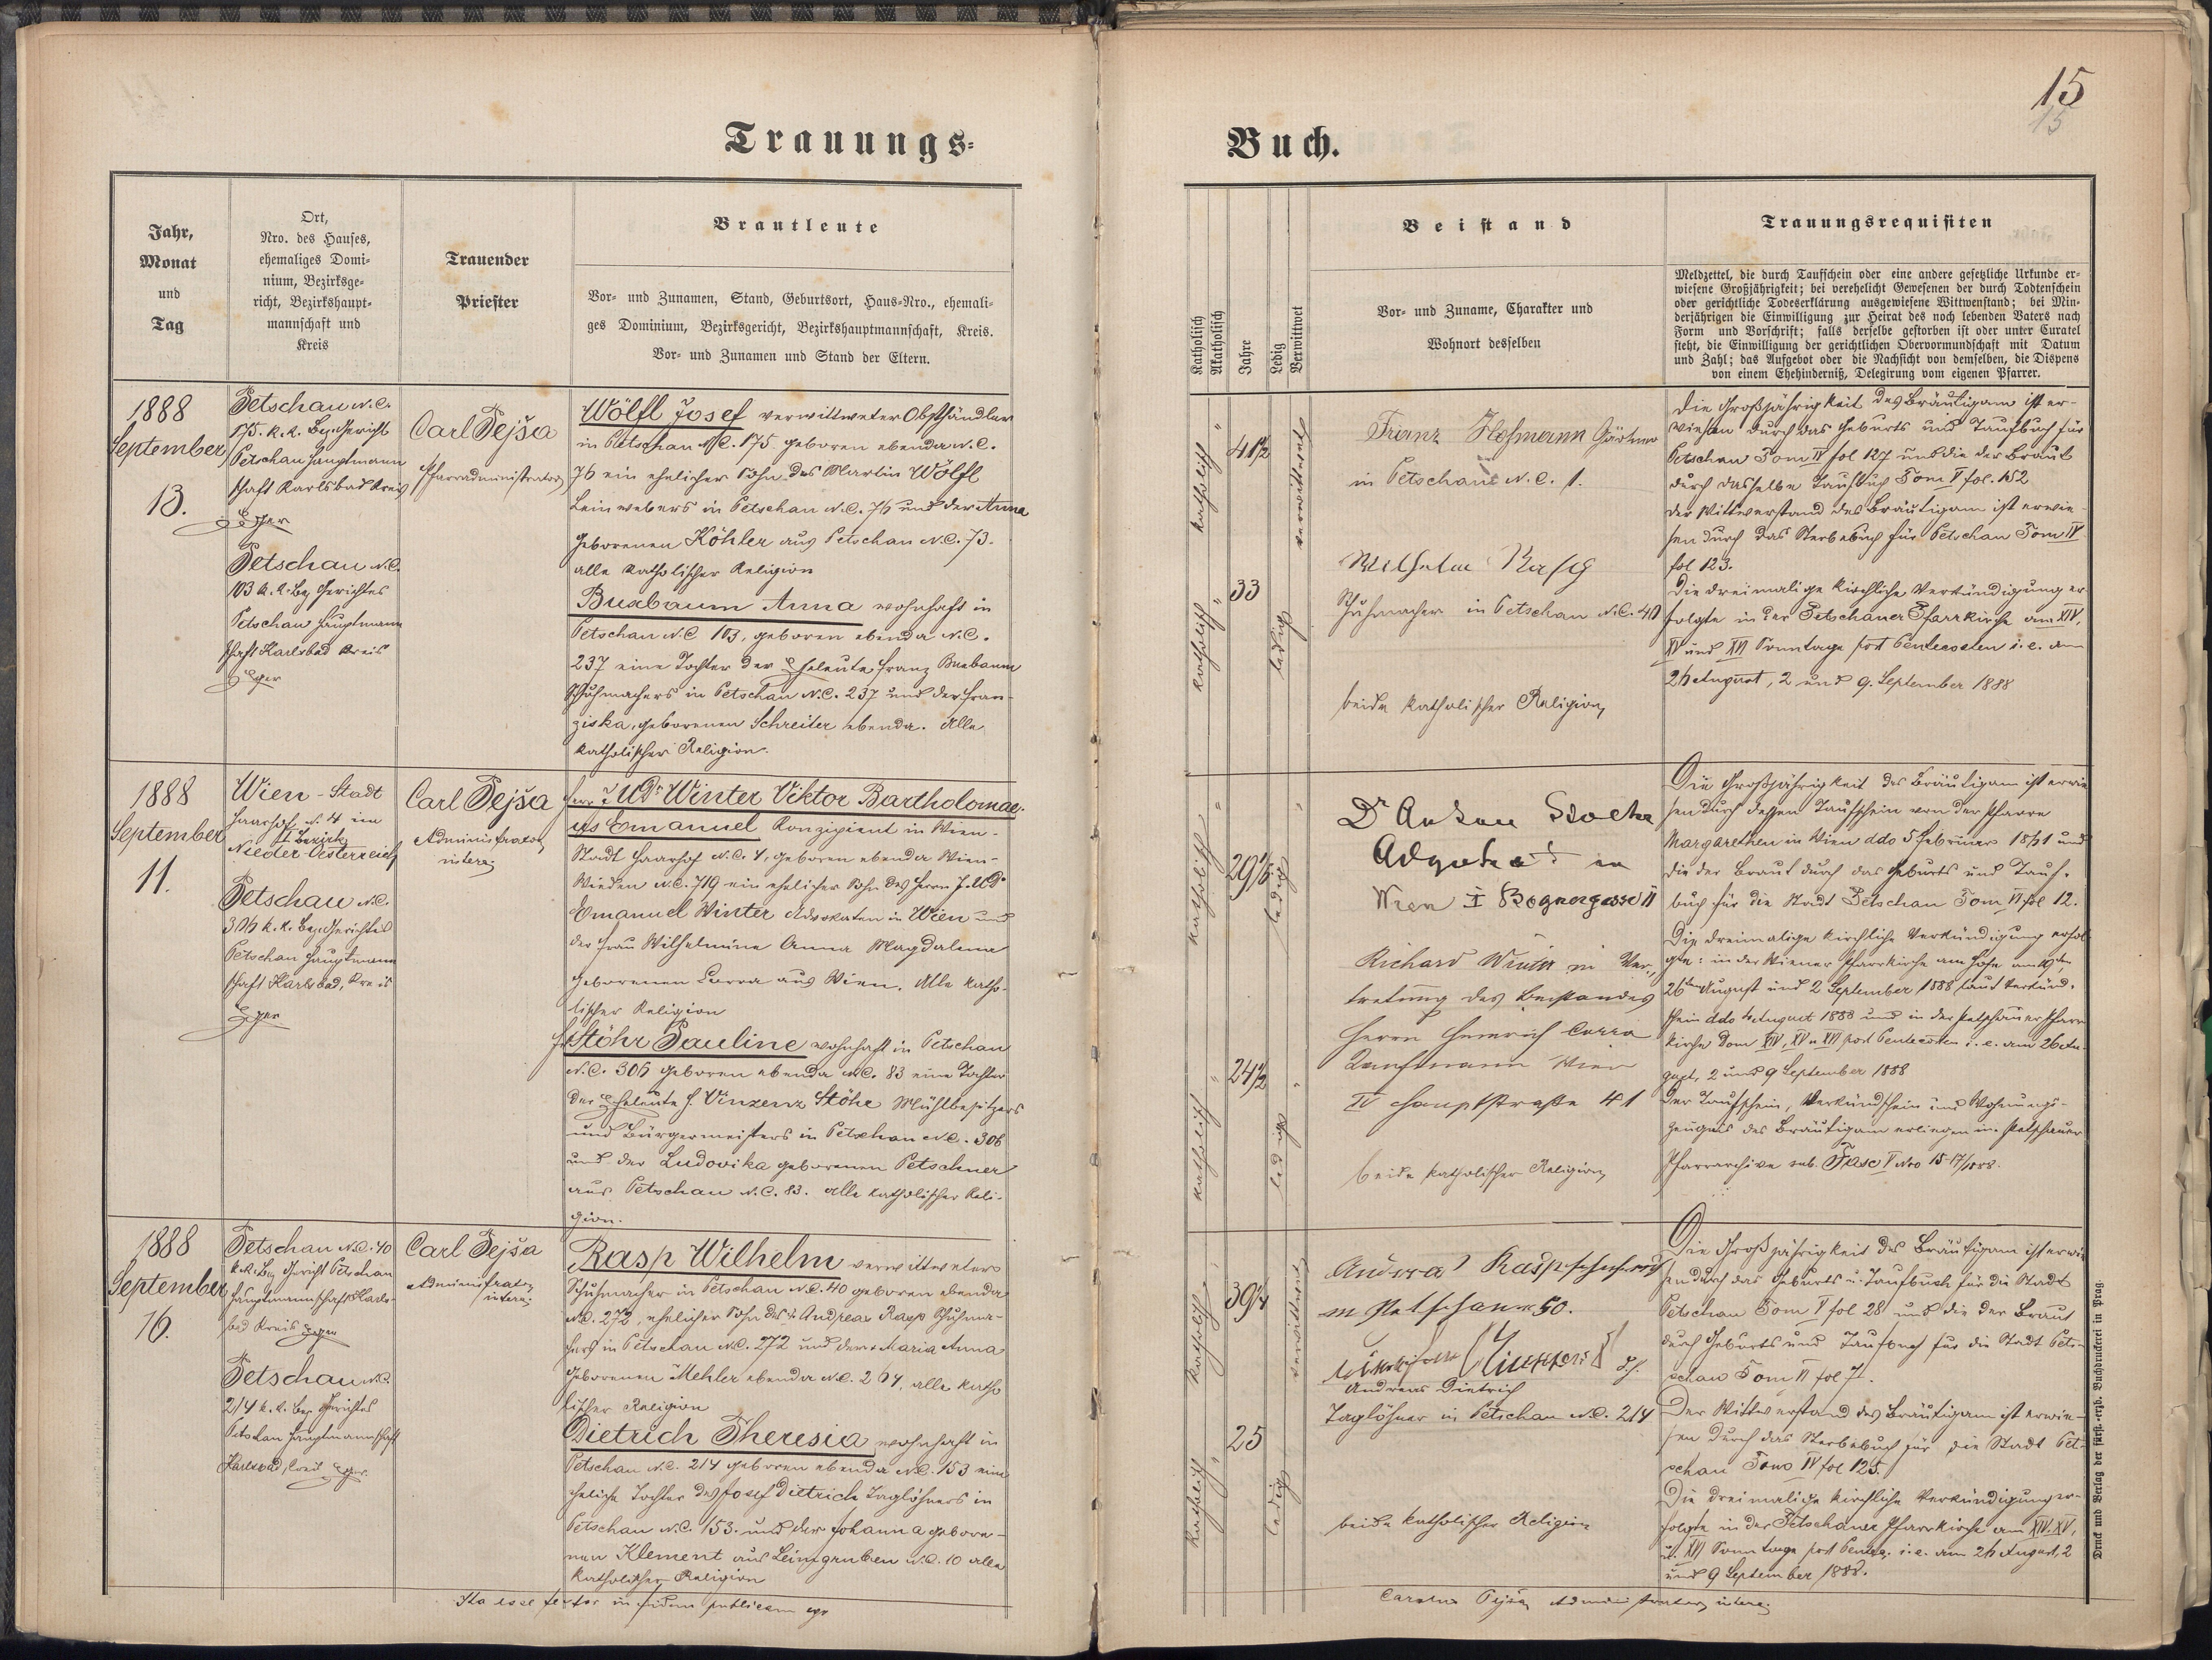 15
15
Trauungs-
Buch.
Jahr,
Monat
und
Tag
Ort,
Nro. des Hauses,
ehemaliges Domi-
nium, Bezirksge-
richt, Bezirkshaupt-
mannschaft und
Kreis
Trauender
Priester
Brautleute
Vor- und Zunamen, Stand, Geburtsort, Haus-Nro., ehemali-
ges Dominium, Bezirksgericht, Bezirkshauptmannschaft, Kreis.
Vor- und Zunamen und Stand der Eltern.
Katholisch
Akatholisch
Jahre
Ledig
Verwittwet
Beistand
Vor- und Zuname, Charakter und
Wohnort desselben
Trauungsrequisiten
Meldzettel, die durch Taufschein oder eine andere gesetzliche Urkunde er-
wiesene Großjährigkeit; bei verehelicht Gewesenen der durch Todtenschein
oder gerichtliche Todeserklärung ausgewiesene Wittwenstand; bei Min-
derjährigen die Einwilligung zur Heirat des noch lebenden Vaters nach
Form und Vorschrift; falls derselbe gestorben ist oder unter Curatel
steht, die Einwilligung der gerichtlichen Obervormundschaft mit Datum
und Zahl; das Aufgebot oder die Nachsicht von demselben, die Dispens
von einem Ehehinderniß, Delegirung vom eigenen Pfarrer.
1888
September
13.
Petschau N.C.
175. k.k. Bez. Gericht
Petschau Hauptmann
schaft Karlsbad Kreis
Eger
Petschau N.C.
103 k.k. Bez Gerichtes
Petschau Hauptmann
schaft Karlsbad Kreis
Eger
Carl Pejša
Pfarradministrator
Wölfl Josef verwittweter Obsthändler
in Petschau N.C. 175 geboren ebenda N.C.
76 ein ehelicher Sohn des Martin Wölfl
Leinwebers in Petschau N.C. 76 und der Anna
geborenen Köhler aus Petschau N.C. 73.
alle katholischer Religion
Buxbaum Anna wohnhaft in
Petschau N.C 103, geboren ebenda N.C.
237 eine Tochter der Eheleute Franz Buxbaum
Schuhmachers in Petschau N.C. 237 und der Fran-
ziska, geborenen Schreiter ebenda. Alle
katholischer Religion.
katholisch "
41 1/2
verwittwet
katholisch "
33
ledig
Franz Hofmann Gärtner
in Petschau N.C. 1.
Wilhelm Rasp
Schuhmacher in Petschau N.C. 40
beide katholischer Religion
Die Großjährigkeit des Bräutigam ist er-
wiesen durch das Geburts und Taufbuch für
Petschau Tom IV fol 127 und die der Braut
durch dasselbe Taufbuch Tom V fol. 152
der Wittwerstand des Bräutigam ist erwie-
sen durch das Sterbebuch für Petschau Tom IV
fol 123.
Die dreimalige kirchliche Verkündigung er-
folgte in der Petschauer Pfarrkirche am XIV,
XV und XVI Sonntage post Pentecosten i.e. am
26 August, 2 und 9. September 1888
1888
September
11.
Wien-Stadt
Haarhof N. 4 im
I Bezirk
Nieder-Oesterreich
Petschau N.C.
306 k.k. Bez. Gerichtes
Petschau Hauptmann
schaft Karlsbad, Kreis
Eger
Carl Pejša
Administrator
interc.
Herr JUDr Winter Viktor Bartholomae-
us Emanuel Konzipient in Wien-
Stadt Haarhof N.C. 4, geboren ebenda Wien-
Wieden N.C. 719 ein ehelicher Sohn des Herrn JUDr
Emanuel Winter Advokaten in Wien und
der Frau Wilhelmine Anna Magdalena
geborenen Corra aus Wien. Alle katho-
lischer Religion
Stöhr Pauline wohnhaft in Petschau
N.C. 306 geboren ebenda N.C. 83 eine Tochter
der Eheleute H. Vinzenz Stöhr Mühlbesitzers
und Bürgermeisters in Petschau N.C. 306
und der Ludovika geborenen Petschner
aus Petschau N.C. 83. alle katholischer Reli-
gion.
katholisch "
ledig "
katholisch "
24 1/2
ledig "
Dr Anton
in
Wien I Bognergasse
Richard Winter in Ver-
tretung des Beistandes
Herrn Heinrich Corra
Kaufmann Wien
IV Hauptstraße 41
beide katholischer Religion
Die Großjährigkeit des Bräutigam ist erwie
sen durch dessen Taufschein von der Pfarre
Margarethen in Wien ddo 5 Februar und
die der Braut durch das Geburts und Tauf-
buch für die Stadt Petschau Tom VI fol 12.
Die dreimalige kirchliche Verkündigung erfol-
gte: in der Wiener Pfarrkirche am Hofe am 19ten,
26ten August und 2 September 1888 laut Verkünd-
schein ddo August 1888 und in der Petschauer Pfarr
kirche Dom XIV, XV u XVI post Pentecosten i.e. am 26 Au-
gust, 2 und 9 September 1888
Der Taufschein, Verkündschein und Wohnungs-
zeugnis des Bräutigam erliegen im Petschauer
Pfarrarchive sub. Fasc V Nro 15-17/1888.
1888
September
16.
Petschau N.C. 40
k.k. Bez Gericht Petschau
Hauptmannschaft Karls-
bad Kreis Eger
Petschau N.C.
214 k.k. Bez Gerichtes
Petschau Hauptmannschaft
Karlsbad, Kreis Eger.
Carl Pejša
Administrator
interc.
Rasp Wilhelm verwittweter
Schuhmacher in Petschau N.C. 40 geboren ebenda
N.C. 272, ehelicher Sohn des + Andreas Rasp Schuhma-
chers in Petschau N.C. 272 und der + Maria Anna
geborenen Mehler ebenda N.C. 264, alle katho
lischer Religion
Dietrich Theresia wohnhaft in
Petschau N.C. 214 geboren ebenda N.C. 153 eine
eheliche Tochter des Josef Dietrich Taglöhners in
Petschau N.C. 153. und der Johanna gebore-
nen Klement aus Leimgruben N.C. 10 alle
katholischer Religion
katholisch
verwittwet
katholisch "
25
ledig
Rasp
in Petschau 50.
Andreas Dietrich
Taglöhner in Petschau N.C. 214
beide katholischer Religion
Die Großjährigkeit des Bräutigam ist erwie
sen durch das Geburts u. Taufbuch für die Stadt
Petschau Tom V fol 28 und die der Braut
durch Geburts und Taufbuch für die Stadt Pet-
schau Tom VI fol 7.
Der Wittwerstand des Bräutigam ist erwie-
sen durch das Sterbebuch für die Stadt Pet-
schau Tom IV fol 125.
Die dreimalige kirchliche Verkündigung er-
folgte in der Petschauer Pfarrkirche am XIV. XV,
u. XVI Sonntage post Penteg. i.e. am 26 August, 2
und 9 September 1888.
Ita esse testor in fidem publicam
Carolus Pejša Administrator interc.
Druck und Verlag der fürst.-erzb. Buchdruckerei in Prag.